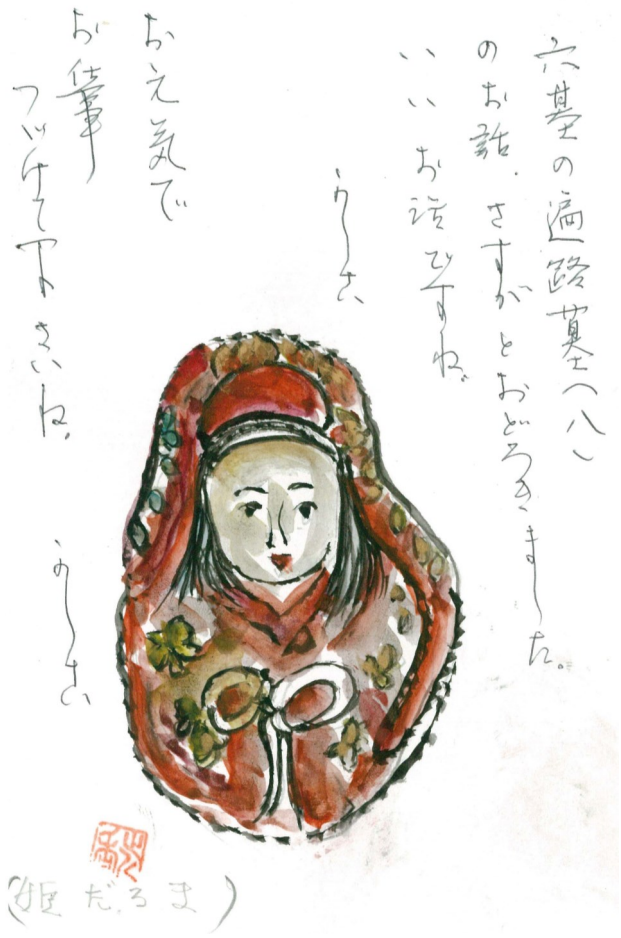 六基の遍路墓(八)
のお話、さすがとおどろきました。
いい お話ですね。
うれしさ
お元気で
お仕事
つづけて下さいね。
うれしさ
(姫だるま)